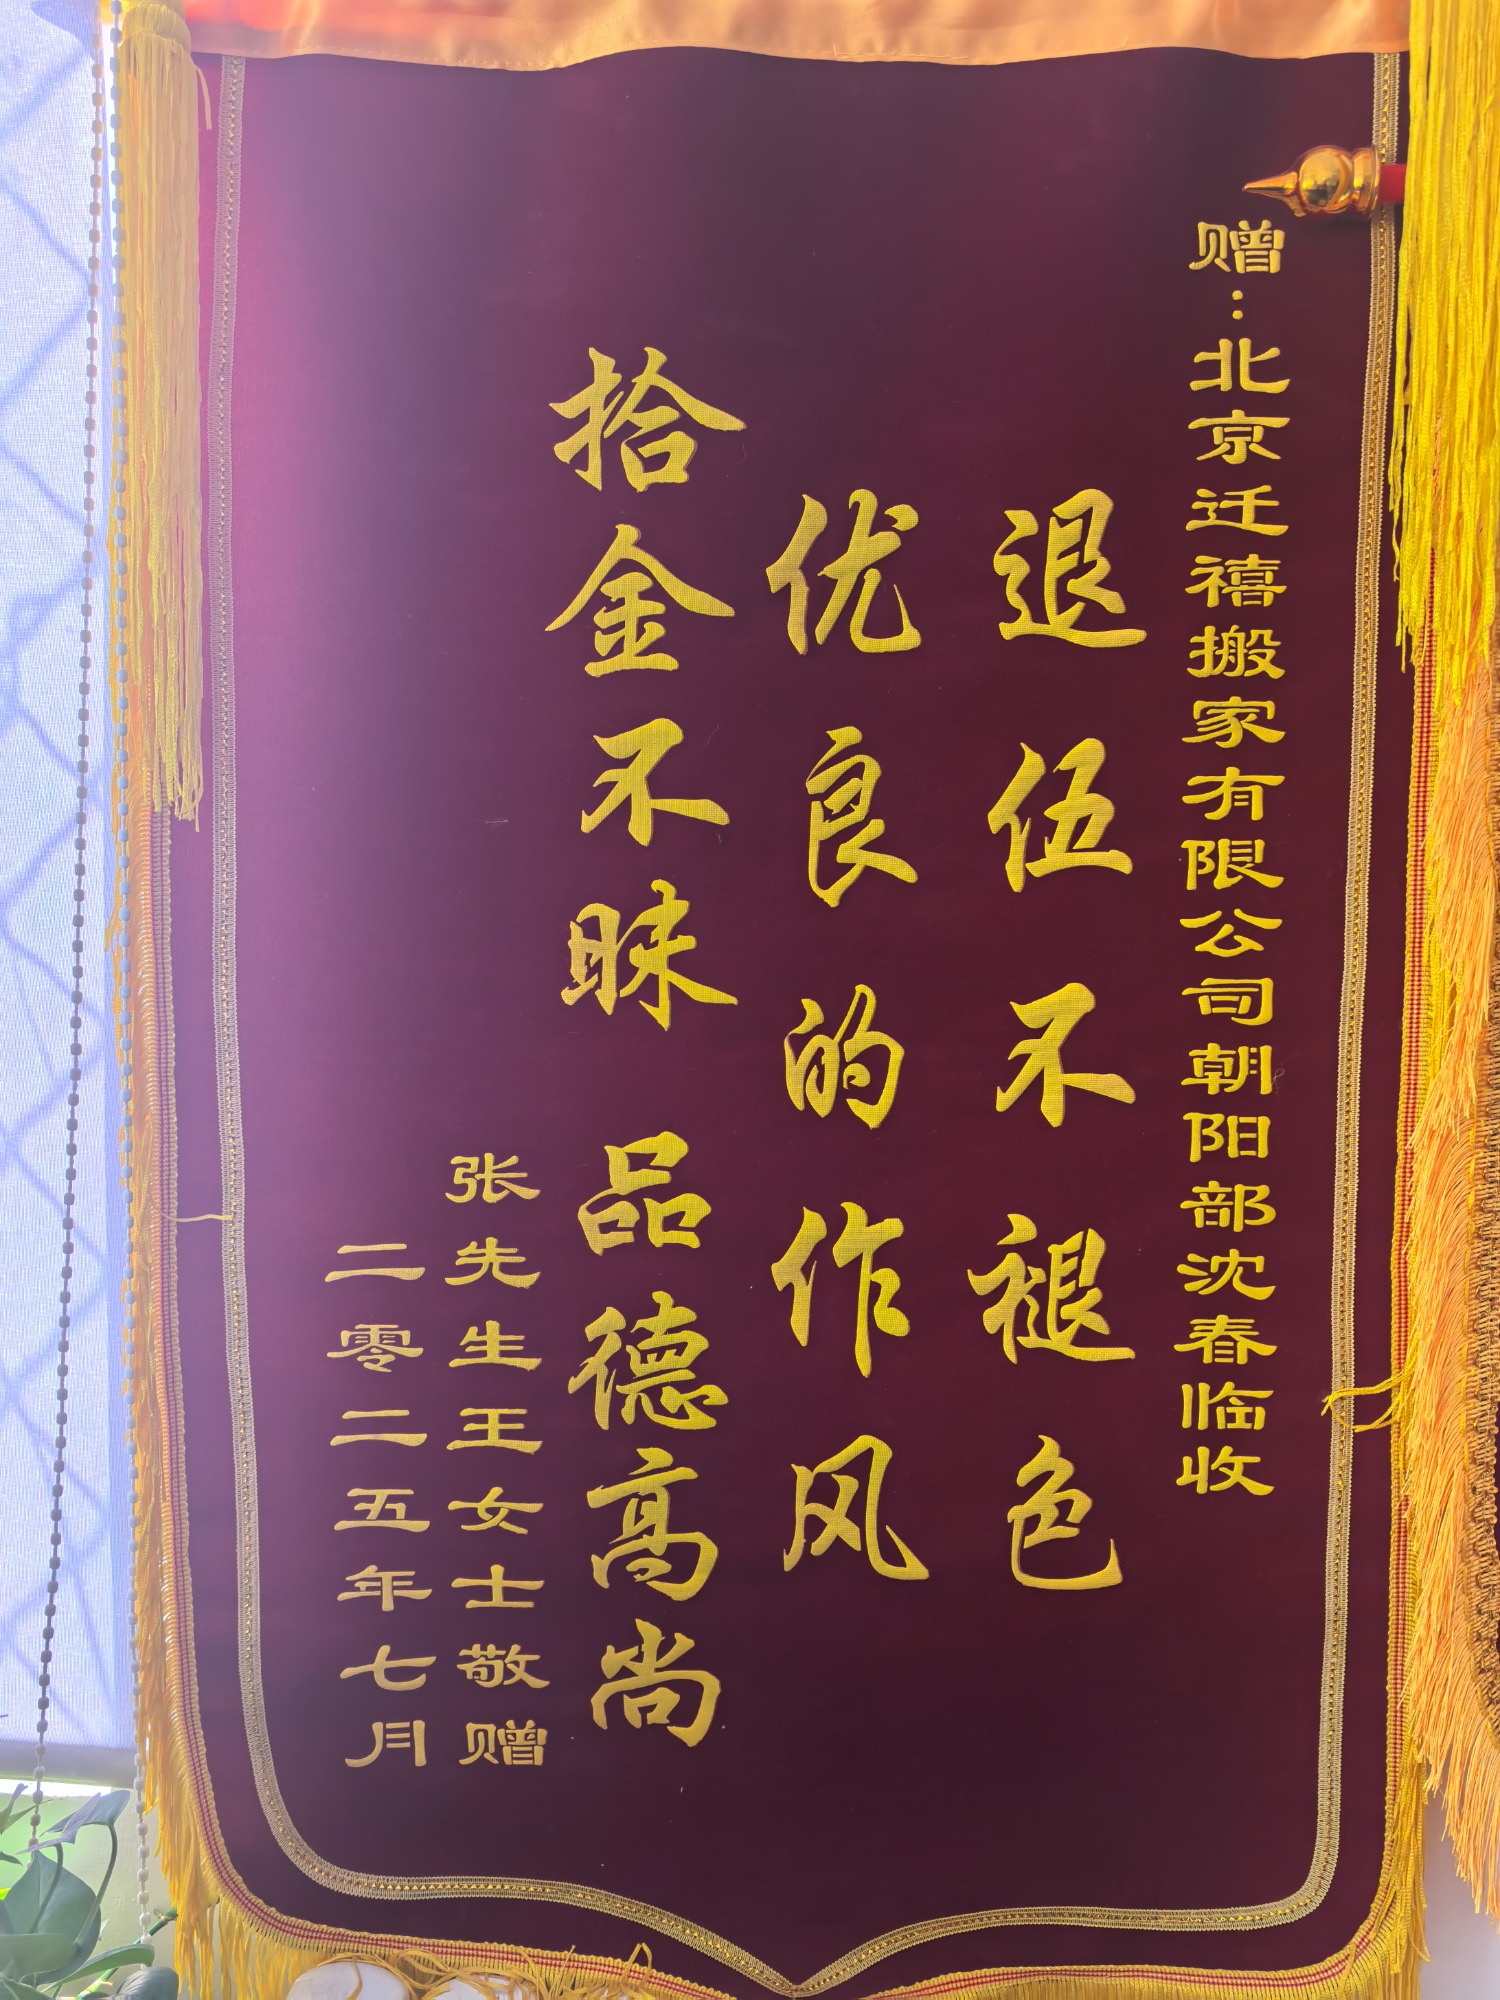 赠：北京迁禧搬家有限公司朝阳部沈春临收
退伍不褪色
优良的作风
拾金不昧 品德高尚
张先生王女士敬赠
二零二五年七月